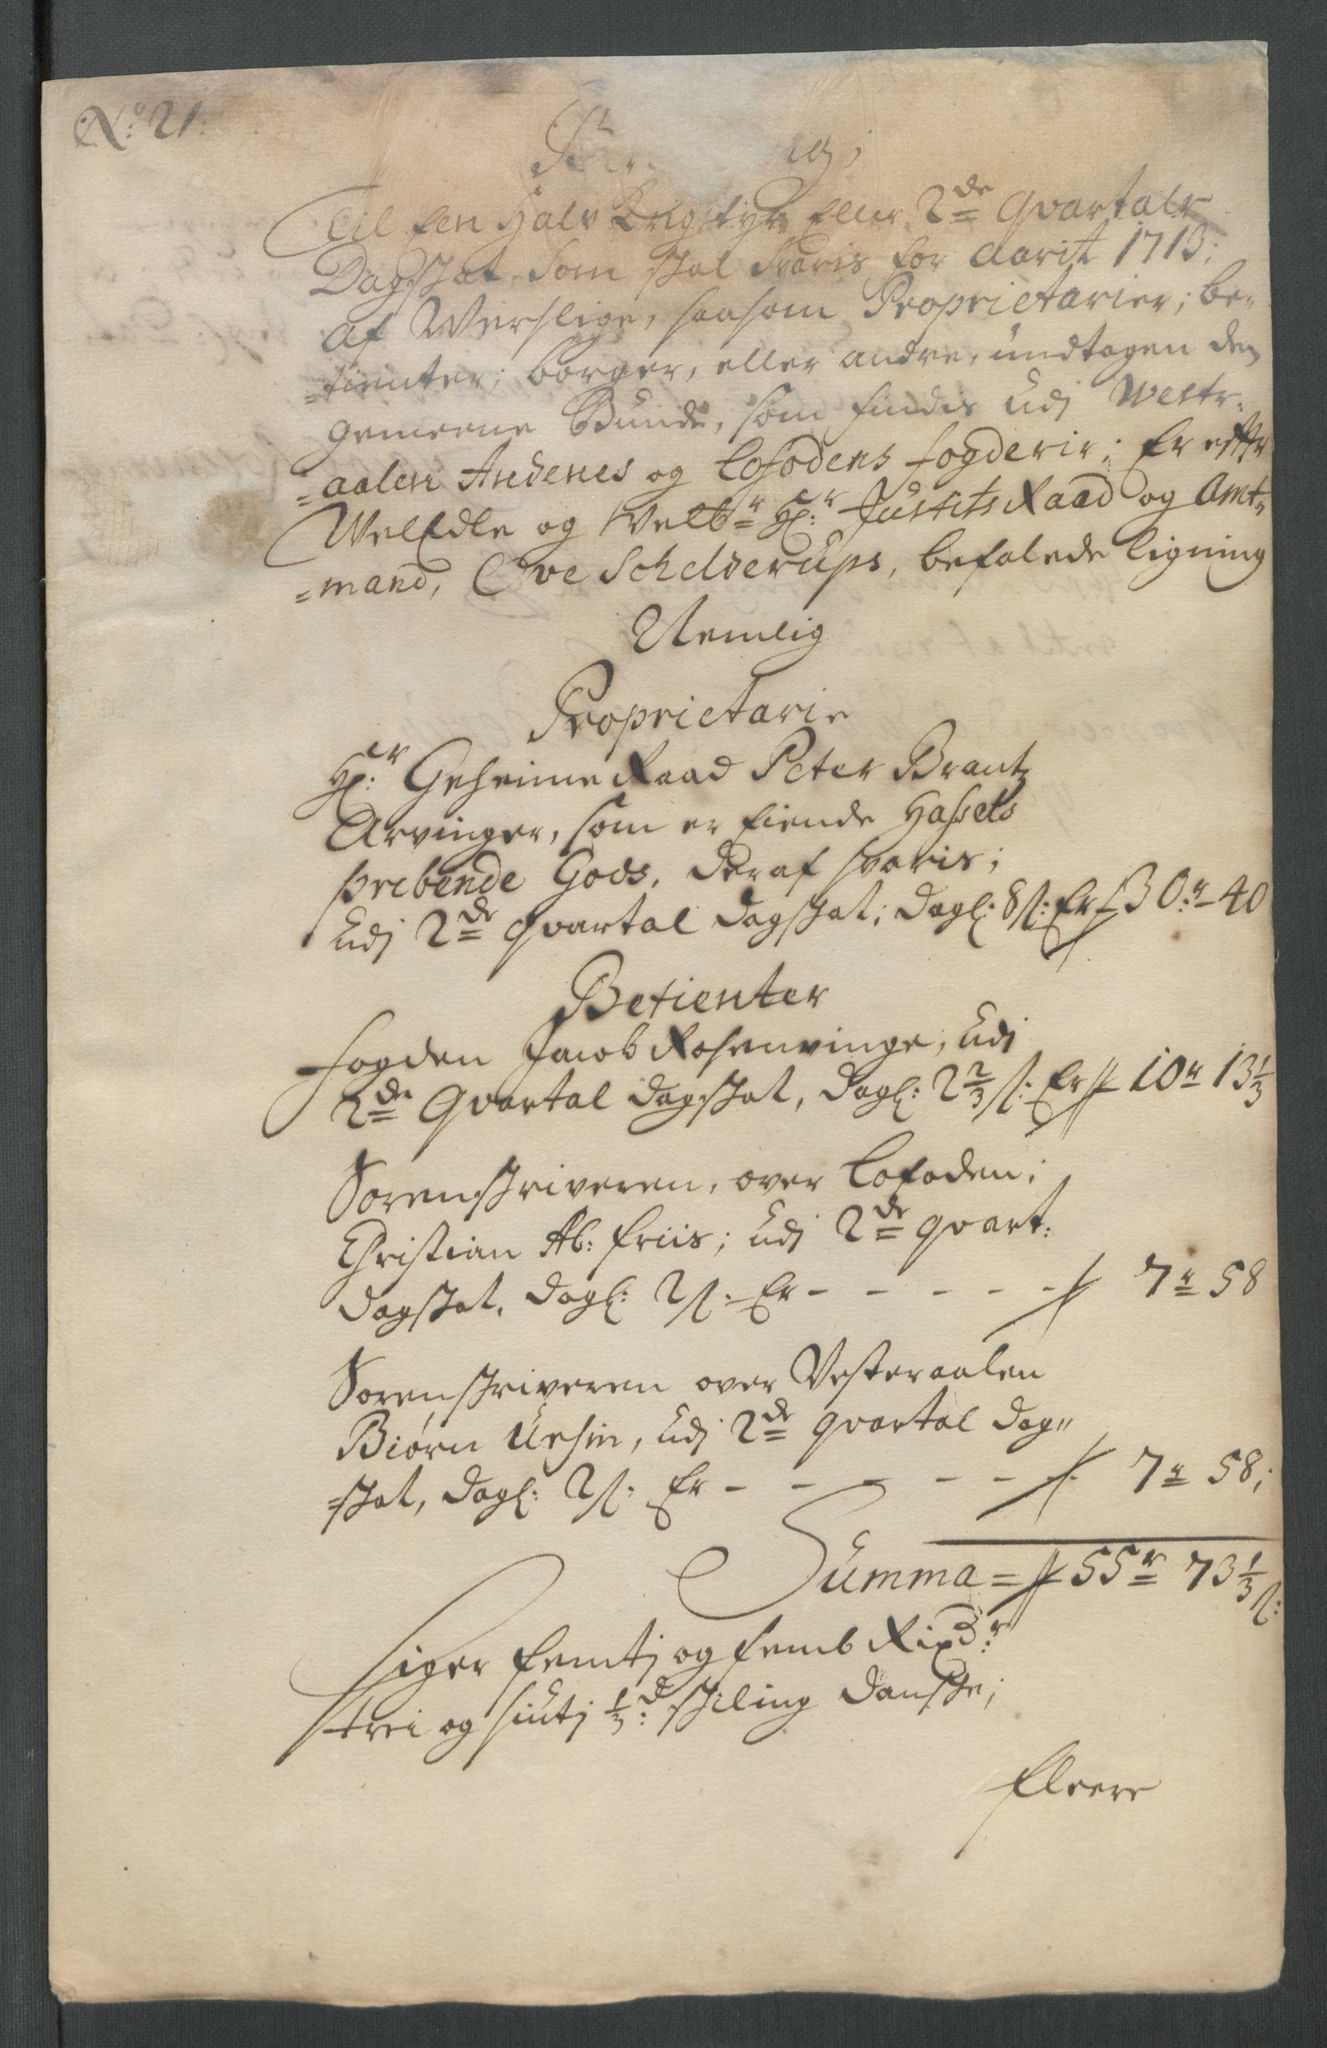 No: 21:
Til En Halv Krigstyr Eller 2de Qvartals
Dagskat, Som skal Svaris for Aarit 1713;
af Werslige, saasom Proprietarier; be-
=tienter; borger, eller andre, undtagen den
gemeene Bunde, som findis udj Westr-
=aalen Andenes og Lofodens fogderie; Er efftr
WelEdle og Velbr Hr: Justits Raad og Amt-
=mand, Ove Schelderups, befalede Ligning
Nemlig
Proprietarie
Hr: Geheime Raad Peter Brantz
Arvinger, som er Eiende Hassels
præbende Gods, deraf svaris;
udj 2de Qvartal dagskat; dagl: 8 s: Er - 30 r 40
Betienter
fogden Jacob Rosenvinge, udj
2de Qvartal dagskat, dagl: 2 2/3 s: Er 10 r 13 1/3
Sorenskriveren, over Lofoden;
Christian Al: friis; udj 2de qvart:
dagskat, dagl: 2 s: Er - - - - - 7 r 58
Sorenskriveren over Vesteraalen
Biørn Ursin, udj 2de qvartal dag=
=skat, dagl: 2 s: Er - - - - - - 7 r 58;
Summa = 55 r 73 1/3 s:
siger femti og femb Rixdr:
trei og siuti 1/3: d skiling danske;